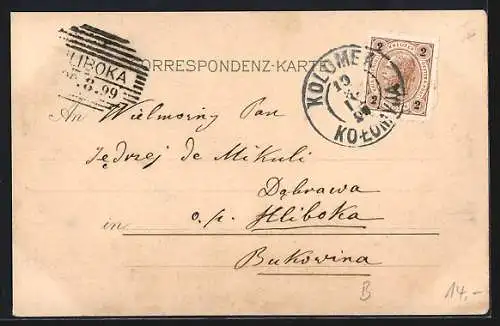 HLIBOKA
8.99
CORRESPONDENZ-KARTE
KOLOMEA
KOŁOMYJA
2 2
2 2
An Wielmożny Pan
Jędrzej de Mikuli
Dąbrawa
in o./p. Hliboka
Bukowina
B 14,-